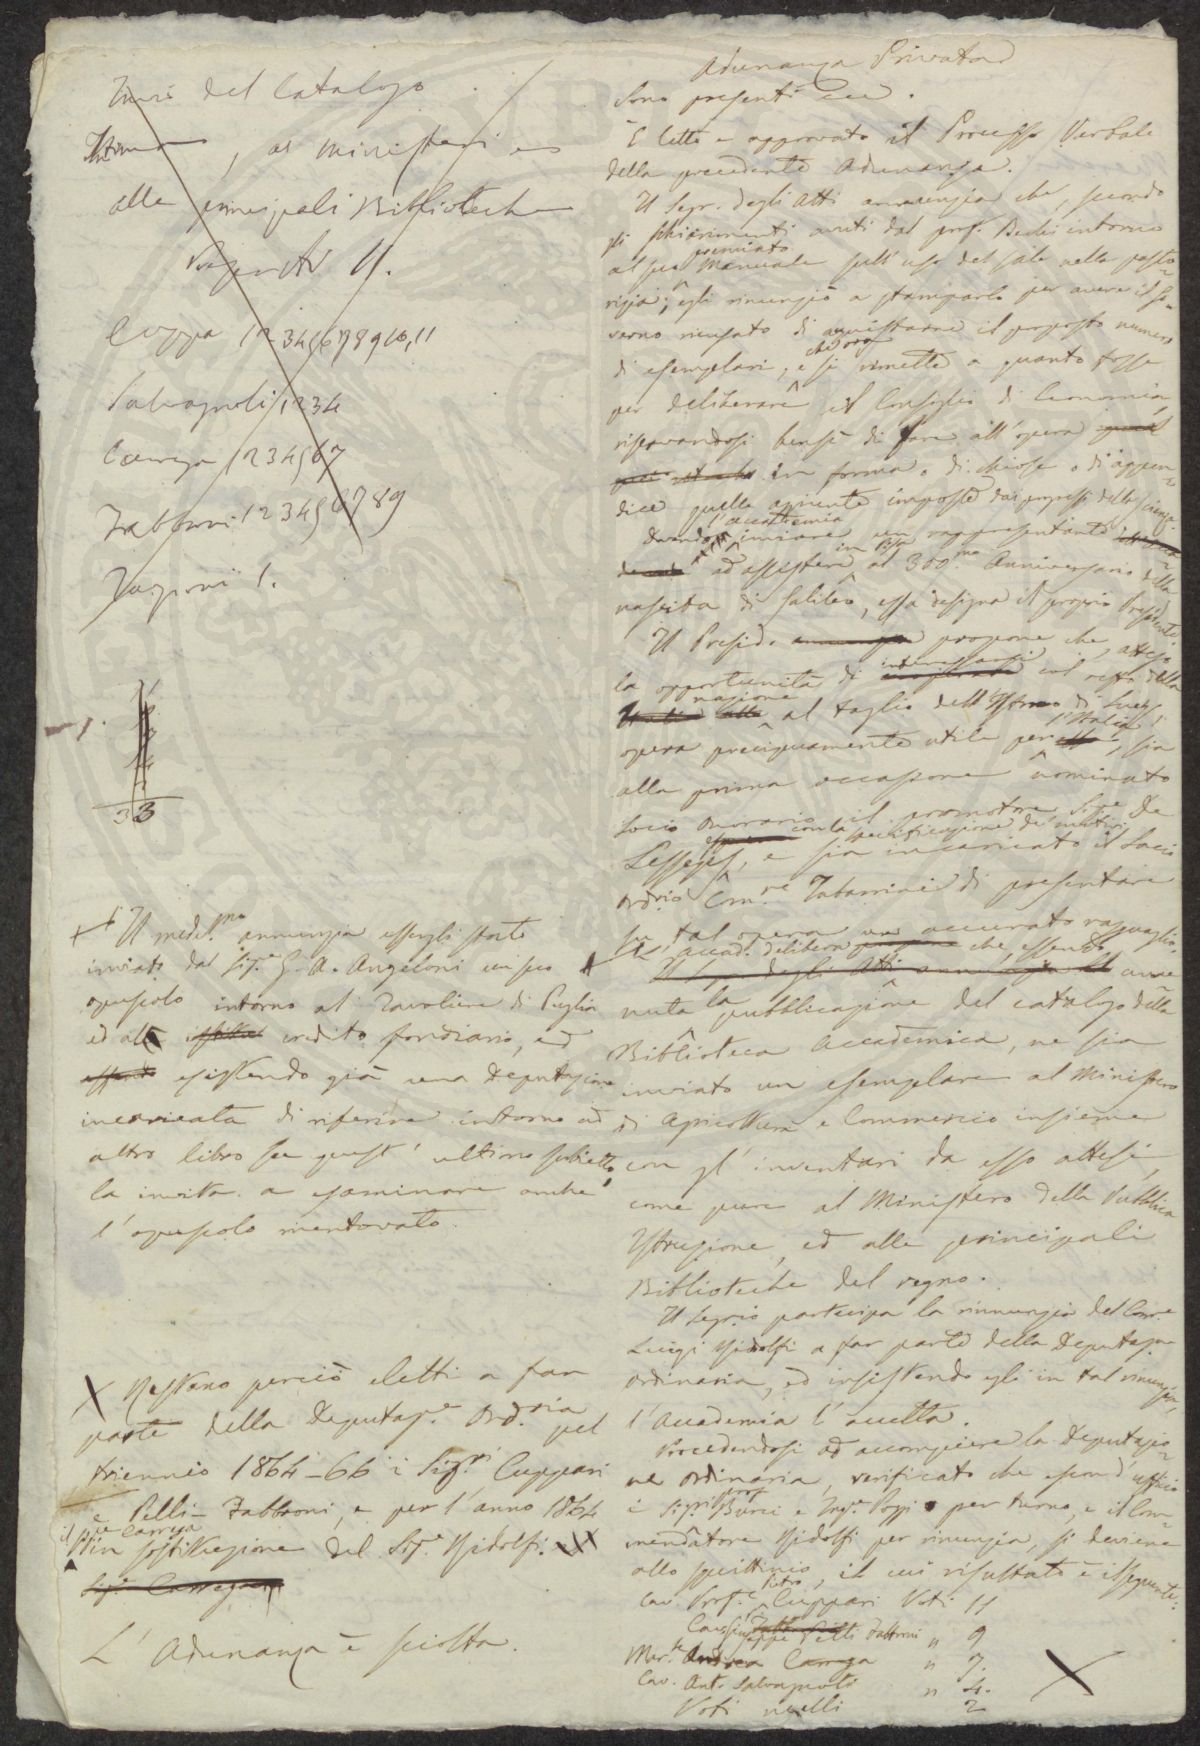 Invio del Catalogo
, ai Ministeri e
alle principali Biblioteche
Cuppari 1 2 3 4 5 6 7 8 9 10, 11
Salvagnoli 1 2 3 4
Carega 1 2 3 4 5 6 7
Fabbroni 1 2 3 4 5 6 7 8 9
1.
33
Il med.mo annunzia essergli stato
inviato dal Sig.e G. A. Angeloni un suo
opuscolo intorno al Tavoliere di Puglia
ed al credito fondiario, ed
essendo esistendo già una Deputazione
incaricata di riferire intorno ad
altro libro su quest' ultimo subietto,
la invita a esaminare anche
l'opuscolo mentovato.
X Restano perciò eletti a far
parte della Deputaz.e Ord.ria pel
triennio 1864-66 i Sig.ri Cuppari
e Pelli-Fabbroni, e per l'anno 1864
il Carega
in sostituzione del Sig.e Ridolfi.
Sig.e Carega
L' Adunanza è sciolta.
Adunanza Privata
Sono presenti ecc.
È letto e approvato il Processo Verbale
della precedente Adunanza.
Il Segr. degli Atti annunzia che, secondo
gli schiarimenti avuti dal prof. Bechi intorno
premiato
al suo Manuale sull'uso del sale nella pasto-
rizia, egli rinunziò a stamparlo per avere il Go-
verno ricusato di acquistarne il proposto numero
che ora
di esemplari, e si rimette a quanto fosse
per deliberare il Consiglio di Economia,
riservandosi bensì di fare all'opera
in forma o di chiose o di appen-
dice quelle aggiunte imposte dai progressi della scienza.
l'accademia
Dovendo inviare un rappresentante
in Pisa
ad assistere al 300.mo Anniversario della
nascita di Galileo, essa designa il proprio Presidente.
Il Presid.e propone che, attesa
interessarsi
la opportunità di col resto della
nazione
al taglio dell'Istmo di Suez,
l'Italia
opera precipuamente utile per, sia
alla prima occasione nominato
Socio Onorario il promotore Sig.e De
con la specificazione de' motivi
Lesseps, e sia incaricato il Socio
Ord.rio Com.re Tabarrini di presentare
su tal opera un accurato ragguaglio.
L'accad. delibera che, essendo
Il Seg. degli Atti annunzia avve
nuta la pubblicazione del catalogo della
Biblioteca Accademica, ne sia
inviato un esemplare al Ministero
di Agricoltura e Commercio insieme
con gl' inventari da esso attesi,
come pure al Ministero della Pubblica
Istruzione, ed alle principali
Biblioteche del regno.
Il Segrio partecipa la rinunzia del Com.re
Luigi Ridolfi a far parte della Deputaz.e
ordinaria, ed insistendo egli in tal rinunzia,
l'Accademia l'accetta.
Procedendosi ad accompiere la Deputazio-
ne ordinaria, verificato che escon d'uffizio
prof.
i Sig.ri Burci e Ing.e Pozzi per turno, e il Com-
mendatore Ridolfi per rinunzia, si deviene
allo squittinio, il cui risultato è il seguente:
Pietro
Cav. Prof.e Cuppari Voti 11
Cav. Giuseppe Pelli Fabbroni " 9
Mar.se Andrea Carega " 7.
Cav. Ant.o Salvagnoli " 4.
Voti nulli 2
X